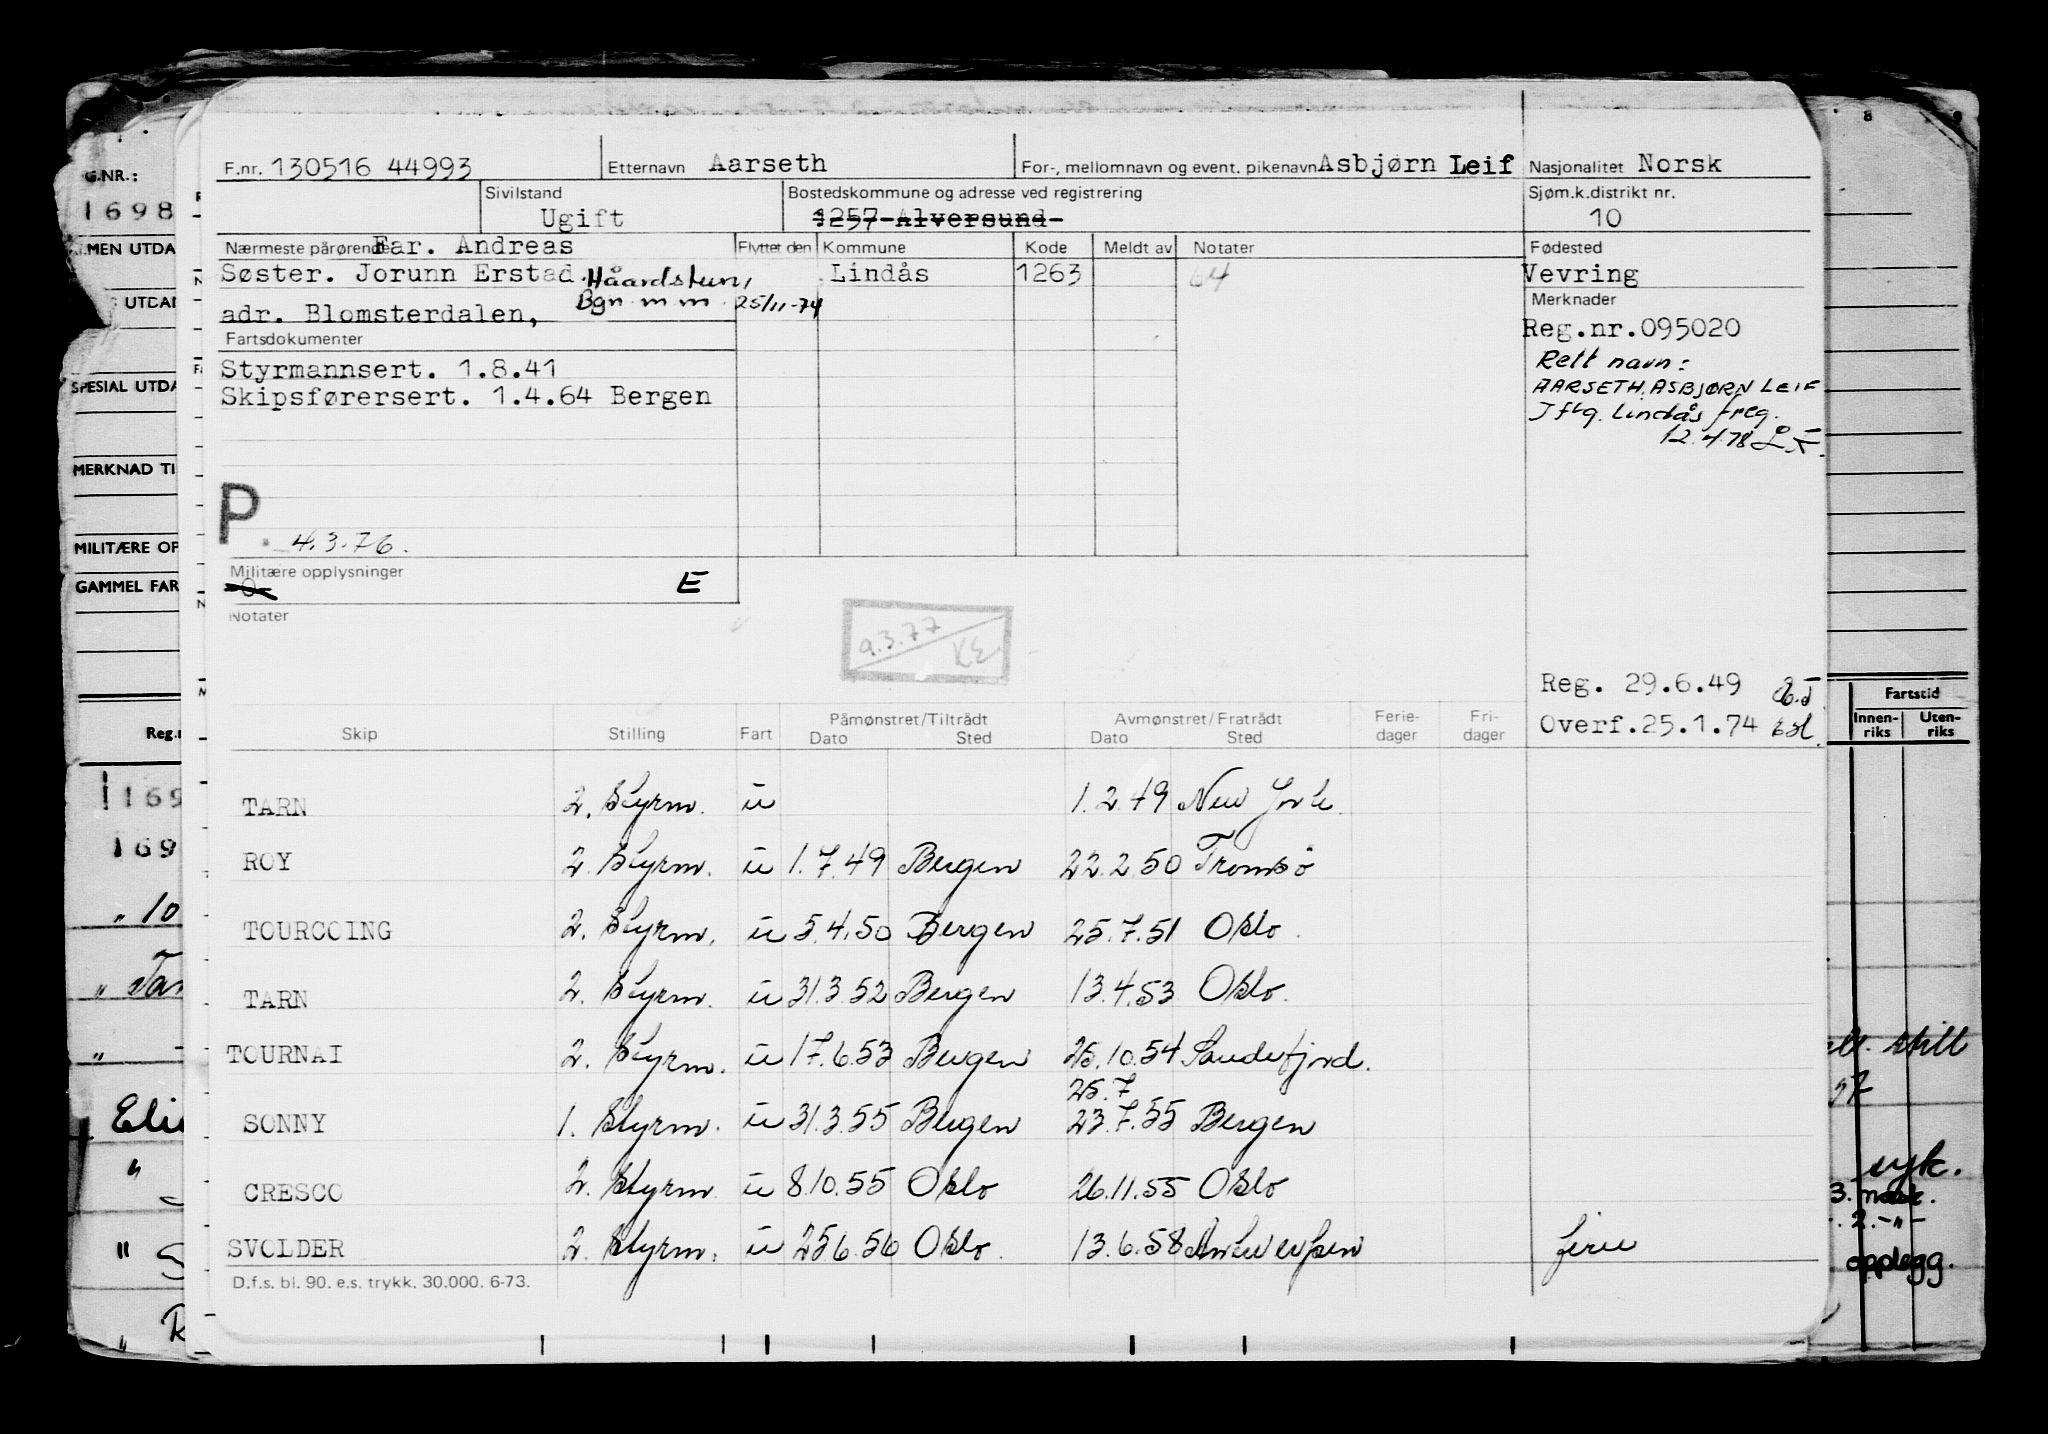 F.nr. 130516 44993 Etternavn Aarseth For-, mellomnavn og event. pikenavn Asbjørn Leif Nasjonalitet Norsk
Sivilstand Bostedskommune og adresse ved registrering Sjøm.k.distrikt nr.
Ugift 1257 Alversund 10
Nærmeste pårørende Far. Andreas Flyttet den Kommune Kode Meldt av Notater Fødested
Søster. Jorunn Erstad. Håardstun, Lindås 1263 64 Vevring
adr. Blomsterdalen, Bgn. m m. 25/11-74 Merknader
Fartsdokumenter Reg.nr.095020
Styrmannsert. 1.8.41 Rett navn:
Skipsførersert. 1.4.64 Bergen AARSETH, ASBJØRN LEIF
Iflg. Lindås freg.
12.4.78
P.
4.3.76.
Militære opplysninger E
Notater
9.3.77
KE
Reg. 29.6.49
Overf.25.1.74
Skip Stilling Fart Påmønstret/Tiltrådt Avmønstret/Fratrådt Ferie-dager Fri-dager
Dato Sted Dato Sted
TARN 2. Styrm. u 1.2.49 New York.
ROY 2. Styrm. u 1.7.49 Bergen 22.2.50 Tromsö
TOURCOING 2. Styrm. u 5.4.50 Bergen 25.7.51 Oslo.
TARN 2. Styrm. u 31.3.52 Bergen 13.4.53 Oslo.
TOURNAI 2. Styrm. u 17.6.53 Bergen 25.10.54 Sandefjord.
25.7
SONNY 1. Styrm. u 31.3.55 Bergen 23.7.55 Bergen
CRESCO 2. Styrm. u 8.10.55 Oslo 26.11.55 Oslo
SVOLDER 2. Styrm. u 25.6.56 Oslo. 13.6.58 Antwerpen ferie
D.f.s. bl. 90. e.s. trykk. 30.000. 6-73.
G.NR.:
1698
MEN UTDA
UTDAN
SPESIAL UTDA
MERKNAD TI
MILITÆRE OP
GAMMEL FAR
Reg.n
1169
169
" 10
" Tar
"
Elie
"
"
"
8 9
Fartstid
Innen-riks Uten-riks
still
syk.
3. mask.
2. -"-
opplegg.